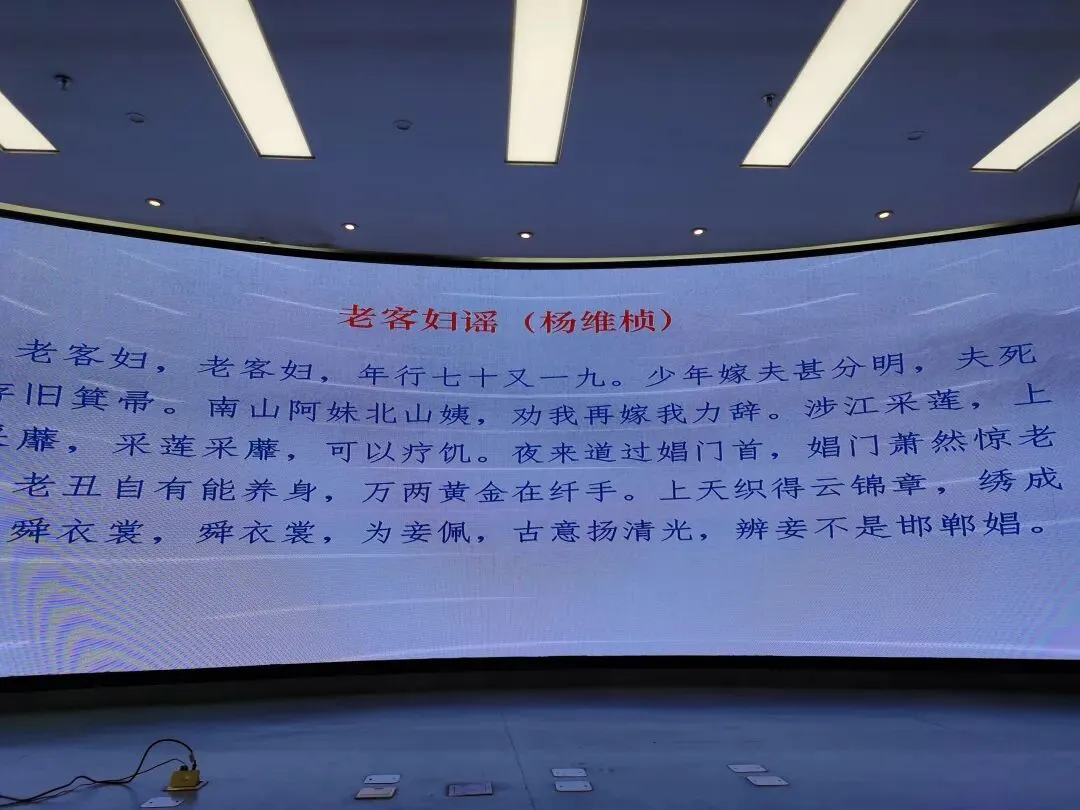 老客妇谣（杨维桢）
老客妇，老客妇，年行七十又一九。少年嫁夫甚分明，夫死
存旧箕帚。南山阿妹北山姨，劝我再嫁我力辞。涉江采莲，上
采蘼，采莲采蘼，可以疗饥。夜来道过娼门首，娼门萧然惊老
老丑自有能养身，万两黄金在纤手。上天织得云锦章，绣成
舜衣裳，舜衣裳，为妾佩，古意扬清光，辨妾不是邯郸娼。